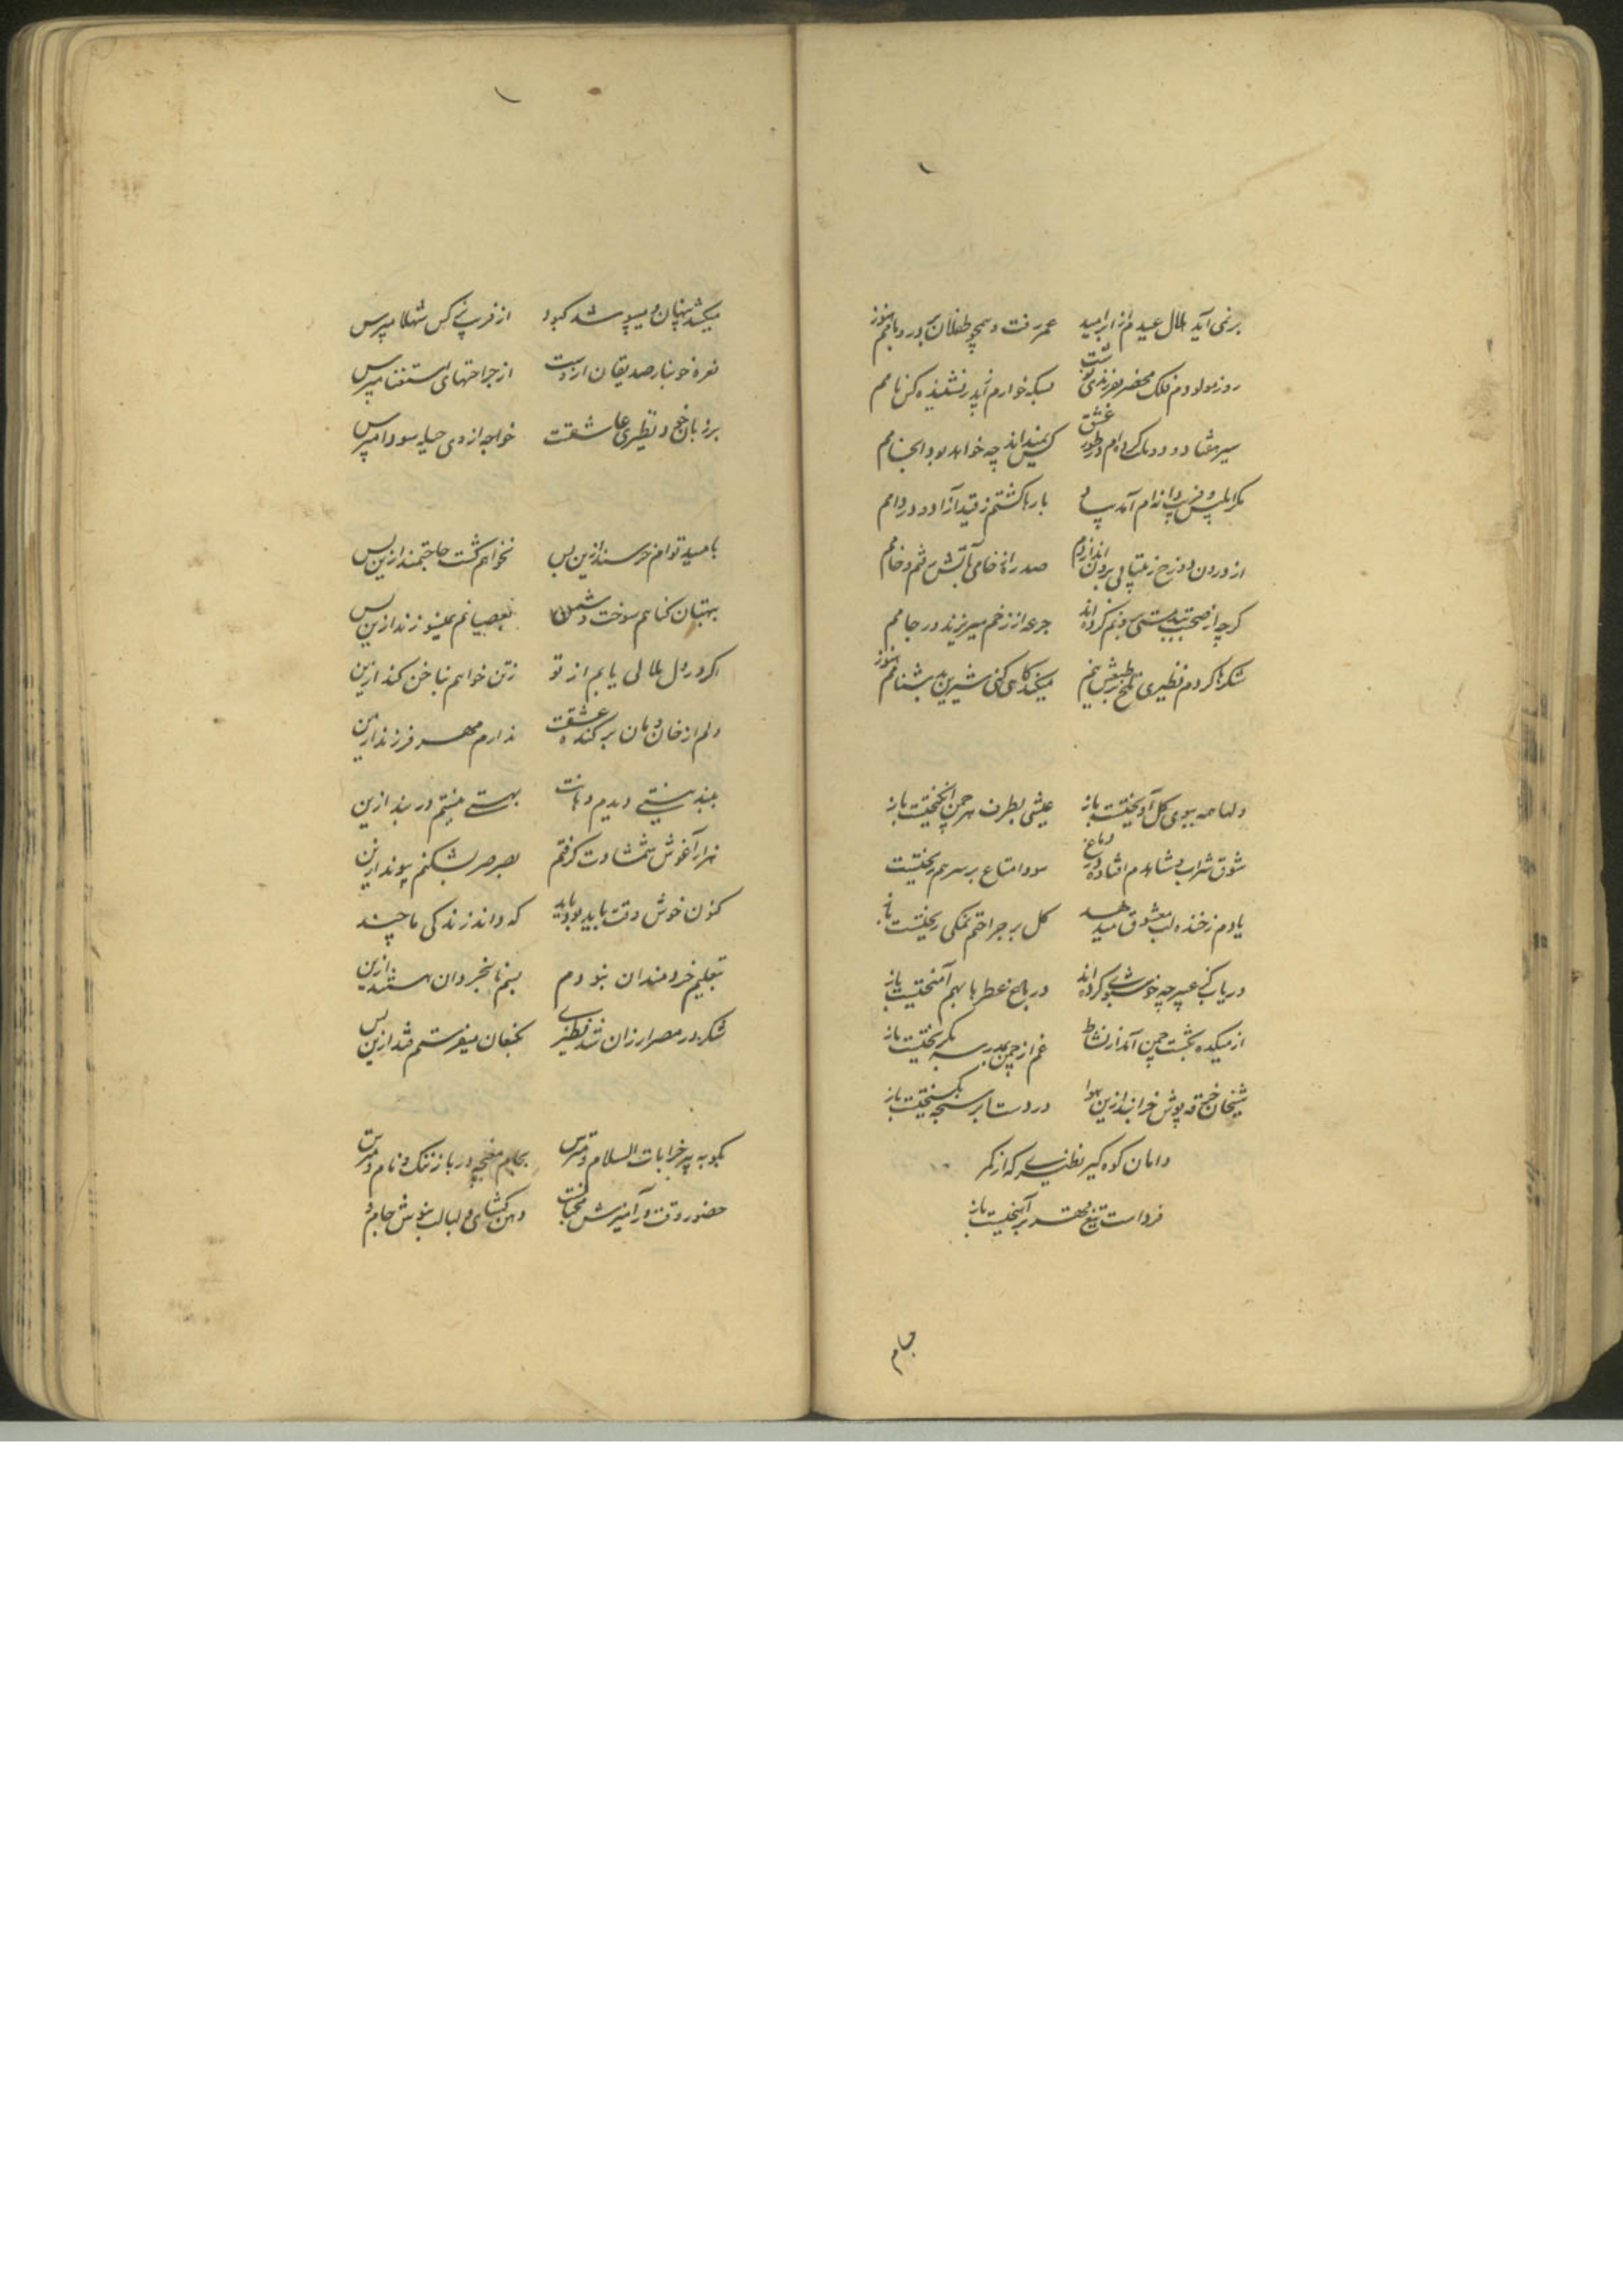 برنمی آید هلال عیدم از ابر امید عمر رفت و همچو طفلان بر در و بامم هنوز
روز مولودم فلک محضر بفرزندی نوشت بسکه خوارم از پدر نشنیده کس نامم
سیر هفتاد و دو ملت کرده‌ام در طور عشق کس نمیداند چه خواهد بود انجامم
مکر ابلیس و فریب دانه‌ام آمد بیاد بارها گشتم ز قید آزاد و در دامم
از درون دوزخ ز بیتابی برون اندازدم صد ره از خامی بآتش رفتم و خامم
گرچه از صحبت بدمستی برونم کرده‌اند جرعه از زخم میریزند در جامم
شکرها کردم نظیری تلخ بر طبعش نیم میکند کامی شیرین بدشنامم هنوز
دلها همه ببوی گل آویختیست باز عیشی بطرف هر چمن انگیختیست باز
شوق شراب و شاهدم افتاده در دماغ سودا متاع بر سر هم ریختیست
یادم ز خنده لب معشوق میدهد گل بر جراحتم نمکی ریختیست باز
دریاب کز عبیر چه خوشبو کرده‌اند در باغ عطرها بهم آمیختیست باز
از میکده بگشت چمن آمد از نشاط غم از چمن بمدرسه بگریختیست باز
شیخان خرقه پوش خرابند ازین هوا در دست ابر سبحه بگسیختیست باز
دامان کوه گیر نظیری که از کمر
فرداست تیغ مهر برآهیختیست باز
بجام
میکشد پنهان و میپوشد کبود از فریب نرگس شهلا مپرس
نعره خونبار صدیقان ازوست از جراحتهای استغنا مپرس
بر زبان خرج و نظیری عاشقست خواجه از وی حیله سودا مپرس
بامید توام خرسند ازین پس نخواهم گشت حاجتمند ازین پس
ببهتان گناهم سوخت دشمن بعصیانم نمیسوزند ازین پس
اگر در دل ملالی یابم از تو ز تن خواهم بناخن کند ازین
دلم از خان و مان برکنده عشقت ندارم مهر فرزند ازین
دیدم دهانت بهستی نیستم در بند ازین
هزار آغوش شمشادت گرفتم بصرصر بشکنم پیوند ازین
کنون خوش وقت باید بود باید که داند زندگی ما چند
بتعلیم خردمندان نبودم بسم نابخردان هستند ازین
شکر در مصر ارزان شد نظیری بکنعان میفرستم قند ازین پس
بگو به پیر خرابات السلام و مترس بجام مغبچه در باز ننگ و نام و مترس
حضور وقت در آمیزش دهن بگشای و لبالب بنوش جام و